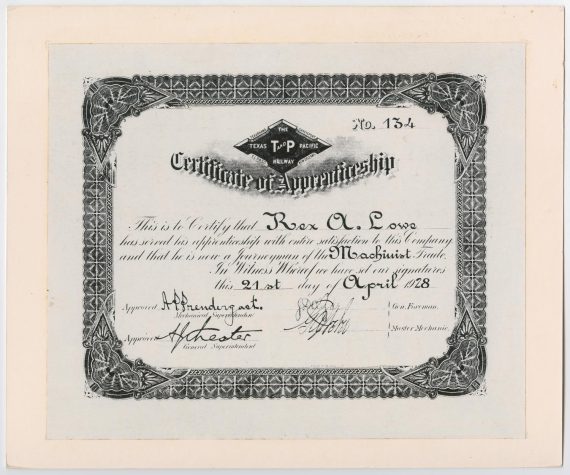 No. 134
THE
TEXAS T AND P PACIFIC
RAILWAY
Certificate of Apprenticeship
This is to Certify that Rex A. Lowe
has served his apprenticeship with entire satisfaction to this Company
and that he is now a Journeyman of the Machinist Trade.
In Witness Whereof we have set our signatures
this 21st day of April 1928
Approved A P Prendergast. Gen. Foreman.
Mechanical Superintendent
Approved Chester Master Mechanic
General Superintendent